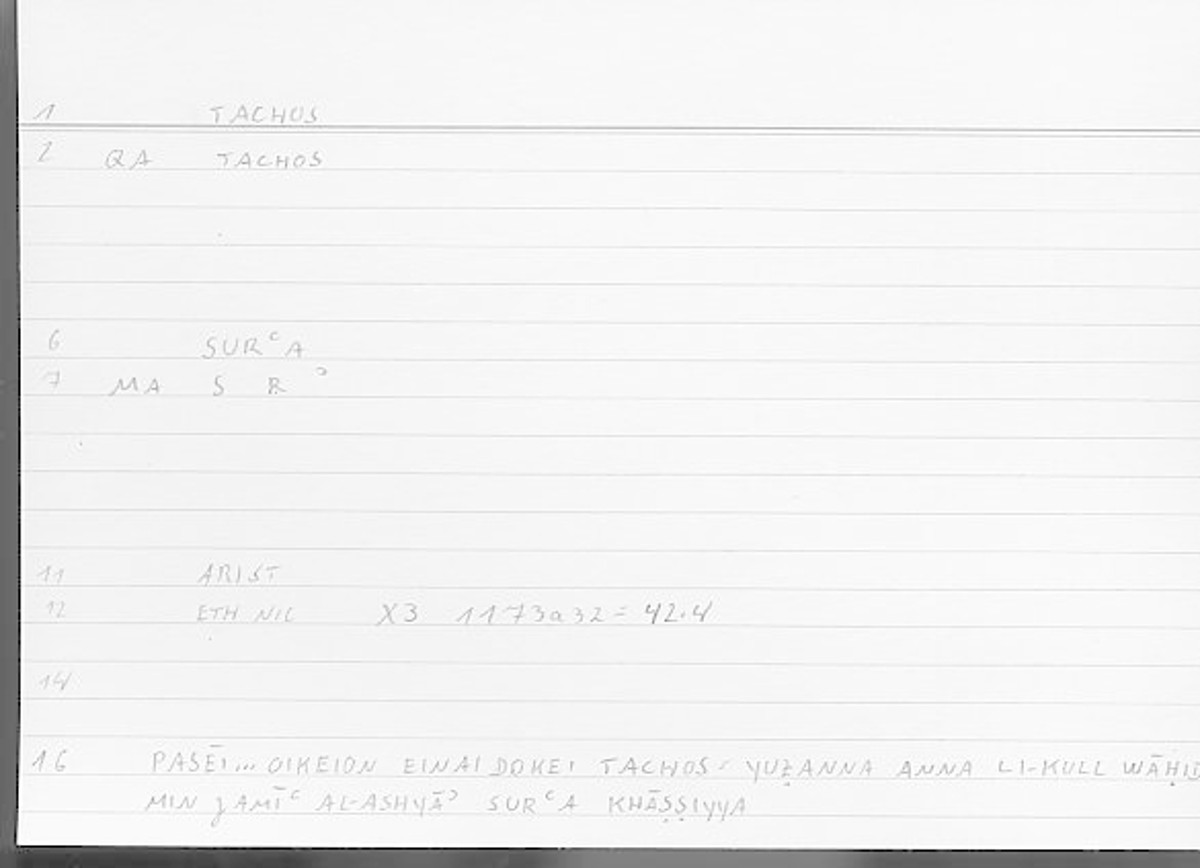 1 TACHOS
2 QA TACHOS
6 SURᶜA
7 MA S R ᵓ
11 ARIST
12 ETH NIC X3 1173a32 = 42.4
14
16 PASĒI... OIKEION EINAI DOKEI TACHOS = YUẒANNA ANNA LI-KULL WĀḤID
MIN JAMĪᶜ AL-ASHYĀᵓ SURᶜA KHĀṢṢIYYA